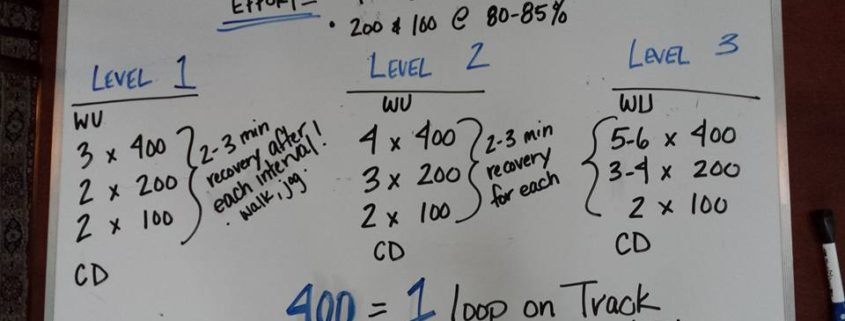 EFFORT
• 200 & 100 @ 80-85%
LEVEL 1
WU
3 x 400
2 x 200
2 x 100
CD
2-3 min
recovery after
each interval!
• walk, jog.
LEVEL 2
WU
4 x 400
3 x 200
2 x 100
CD
2-3 min
recovery
for each
LEVEL 3
WU
5-6 x 400
3-4 x 200
2 x 100
CD
400 = 1 loop on Track